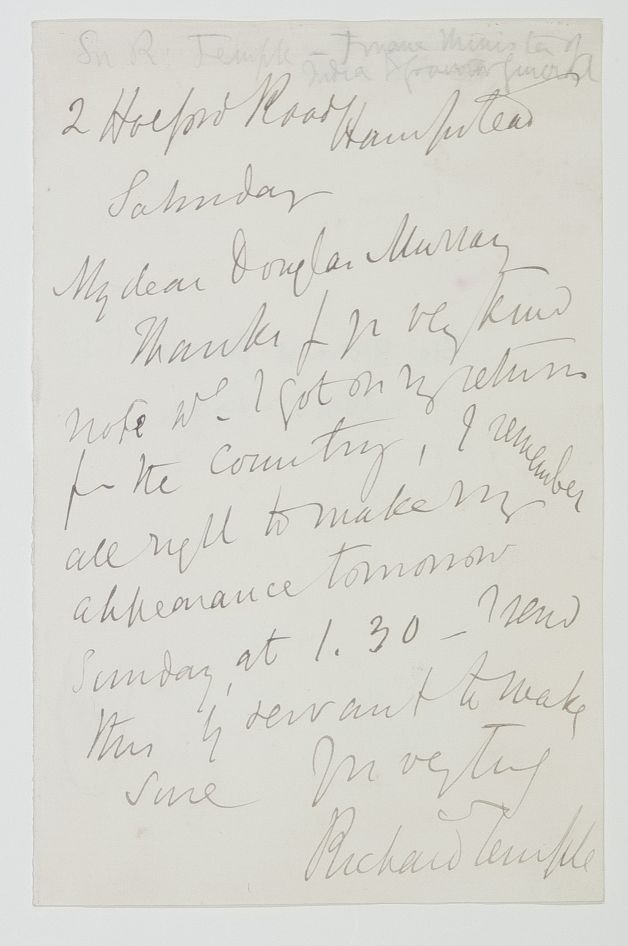 Sir R. Temple - Finance Minister of
India & Governor General
2 Holford Road Hampstead
Saturday
My dear Douglas Murray
Thanks f yr very kind
note wh I got on my return
fm the country, I remember
all right to make my
appearance tomorrow
Sunday, at 1.30 - I send
this by servant to make
sure Yr very truly
Richard Temple